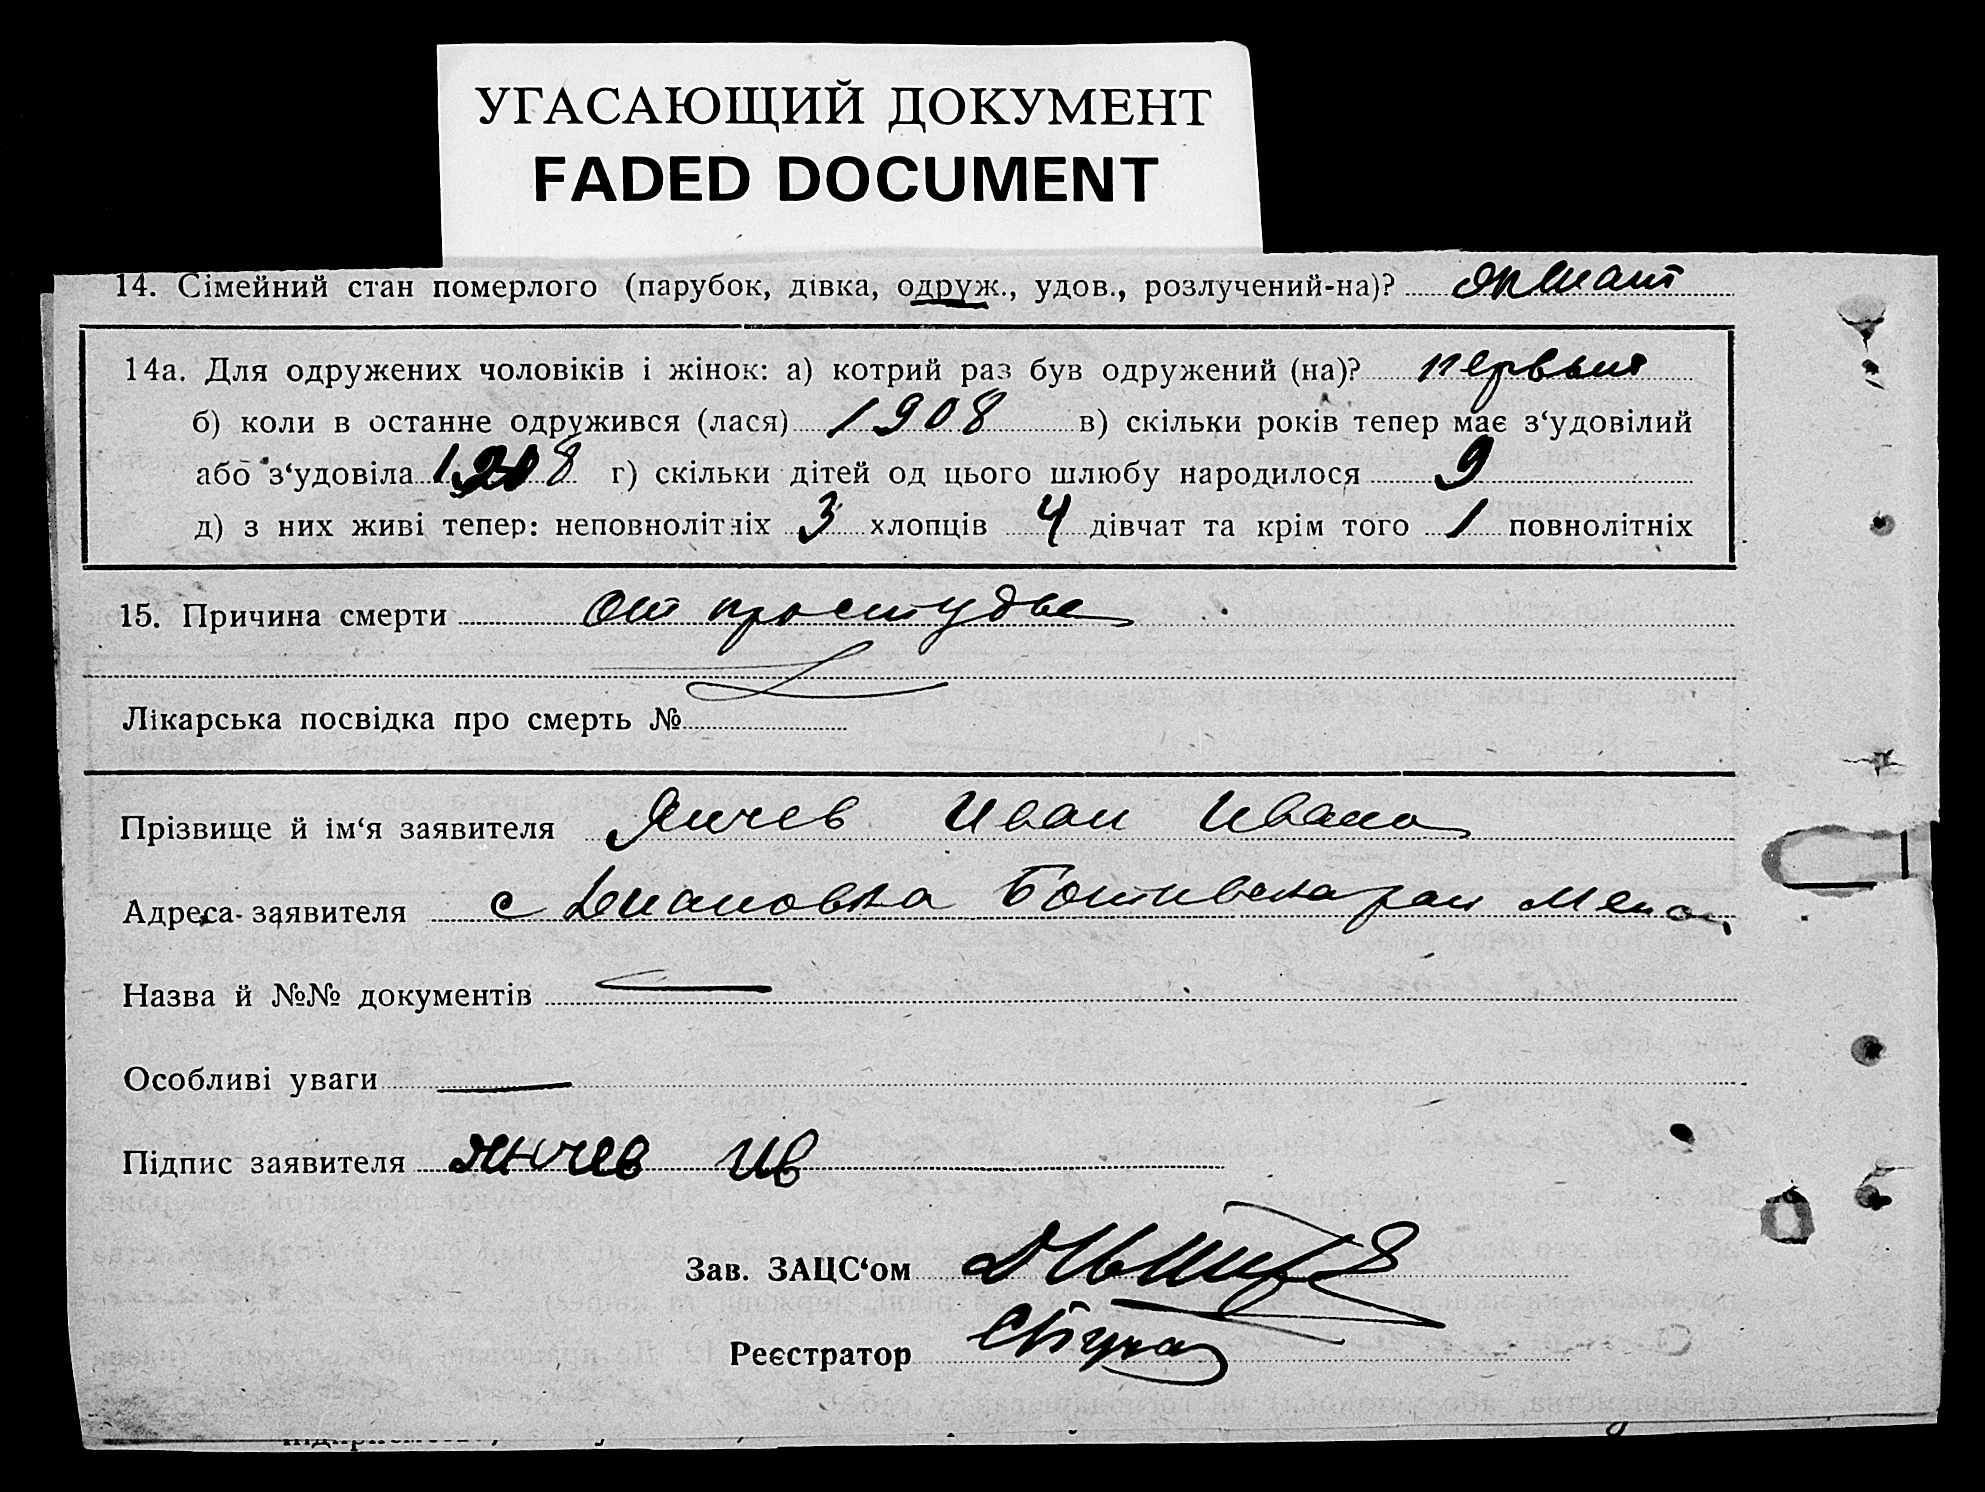 УГАСАЮЩИЙ ДОКУМЕНТ
FADED DOCUMENT
14. Сімейний стан померлого (парубок, дівка, одруж., удов., розлучений-на)?
14а. Для одружених чоловіків і жінок: а) котрий раз був одружений (на)? первый
б) коли в останне одружився (лася) 1908 в) скільки років тепер має з‘удовілий
або з‘удовіла г) скільки дітей од цього шлюбу народилося 9
д) з них живі тепер: неповнолітніх 3 хлопців 4 дівчат та крім того 1 повнолітніх
15. Причина смерти от простуды
Лікарська посвідка про смерть №
Прізвище й ім‘я заявителя Янчев Иван Ивано
Адреса заявителя с
Назва й №№ документів —
Особливі уваги —
Підпис заявителя Янчев Ив
Зав. ЗАЦС‘ом
Реєстратор